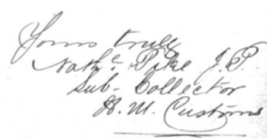 Yours truly
Nathl. Pike J.P.
Sub-Collector
H.M. Customs